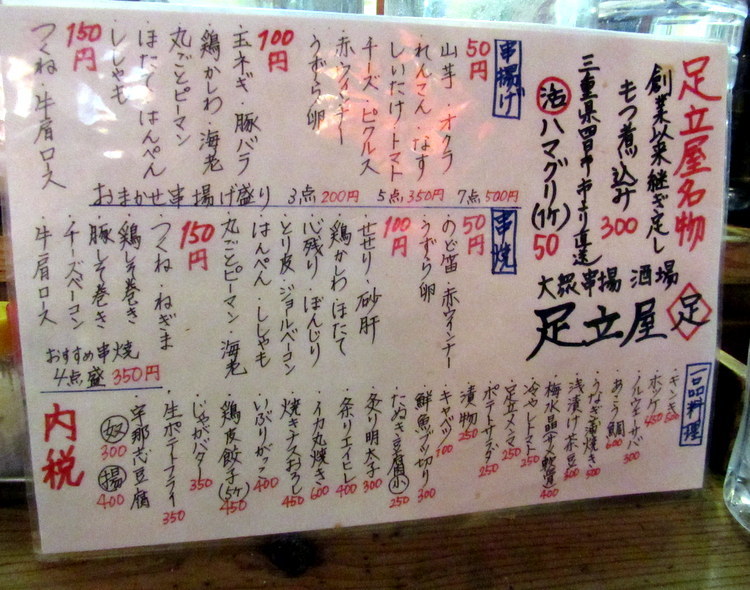 足立屋名物
創業以来継ぎ足し
もつ煮込み 300
三重県四日市市より直送
活 ハマグリ(1ケ) 50
大衆串揚酒場
足立屋
足
串揚げ
50円
山芋・オクラ
れんこん・なす
しいたけ・トマト
チーズ・ピクルス
赤ウィンナー
うずら卵
100円
玉ネギ・豚バラ
鶏かしわ・海老
丸ごとピーマン
ほたて・はんぺん
ししゃも
150円
つくね・牛肩ロース
おまかせ串揚げ盛り 3点200円 5点350円 7点500円
串焼
50円
のど笛・赤ウィンナー
うずら卵
100円
せせり・砂肝
鶏かしわ・ほたて
心残り・ぼんじり
とり皮・ジョルベーコン
はんぺん・ししゃも
丸ごとピーマン・海老
150円
つくね・ねぎま
鶏しそ巻き
豚しそ巻き
チーズベーコン
牛肩ロース
おすすめ串焼
4点盛 350円
一品料理
・キンキ
・ホッケ 450
・ノルウェーサバ 300
・あこう鯛 600
・うなぎ蒲焼き 500
・浅漬け茶豆 300
・梅水晶(サメ軟骨) 400
・冷やしトマト 250
・足立メンマ 250
・ポテトサラダ 250
・漬物 250
・キャベツ 100
・鮮魚ブツ切り 300
・たぬき豆腐(小) 250
・炙り明太子 300
・炙りエイヒレ 400
・イカ丸焼き 600
・焼きナスおろし 450
・いぶりがっこ 400
・鶏皮餃子(5ケ) 450
・じゃがバター 350
・生ポテトフライ 350
・宇那志豆腐
奴 300
揚 400
内税